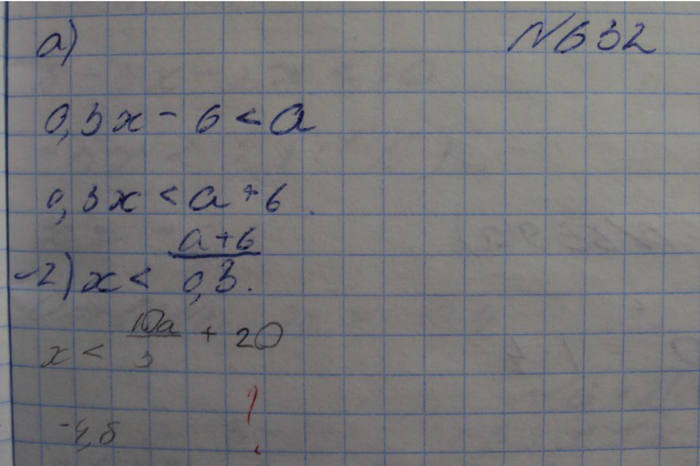 а) №632
0,3x - 6 < a
0,3x < a + 6.
-2) x < (a+6)/0,3.
x < 10a/3 + 20
!
-4,8